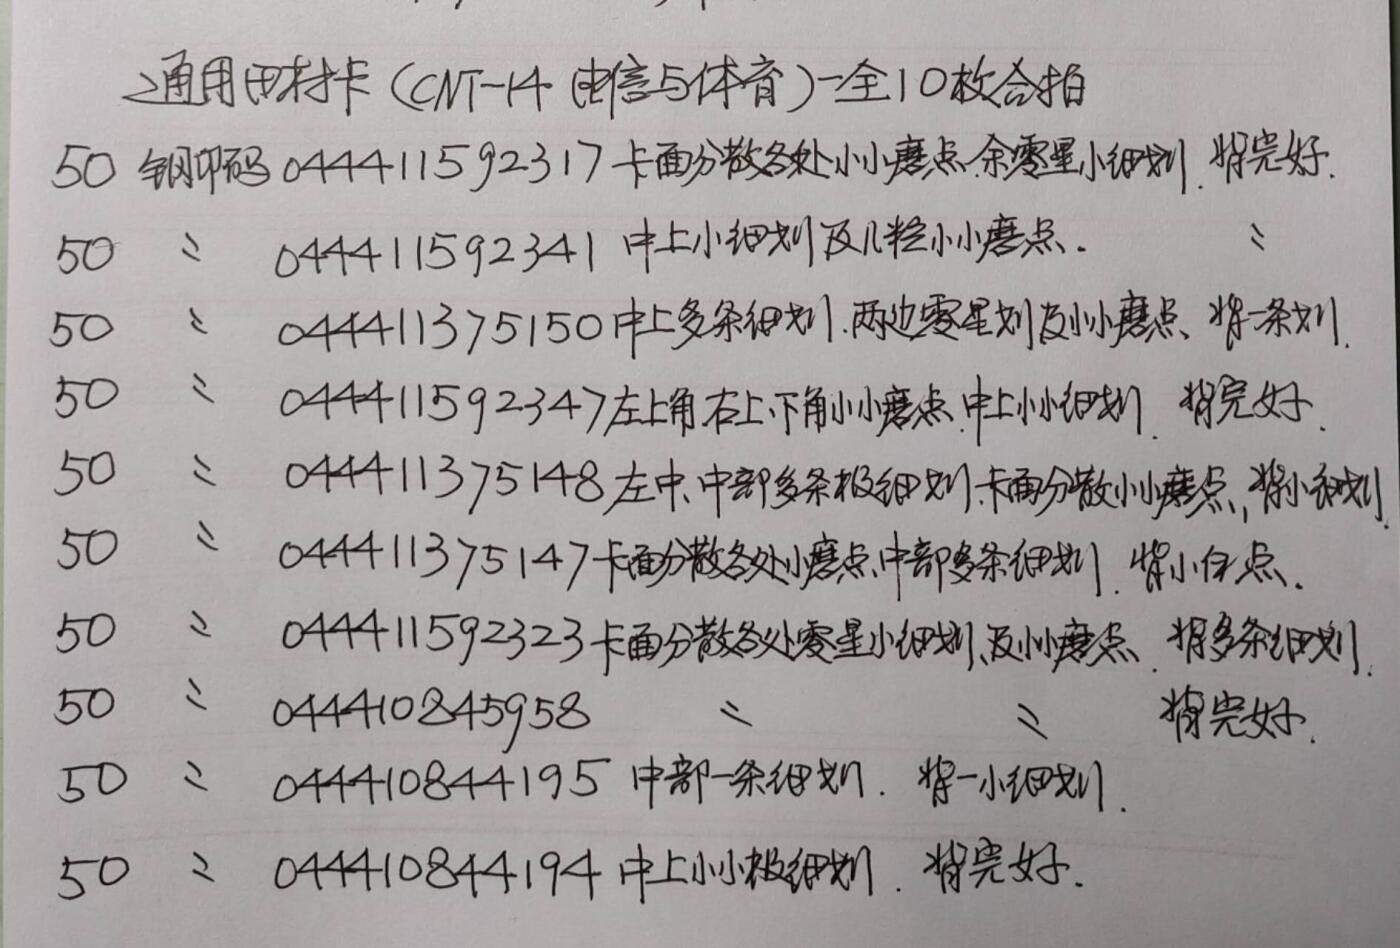 通用田村卡(CNT-14 电信与体育)一全10枚合拍
50 钢印码 044411592317 卡面分散各处小小磨点.余零星小细划. 背完好.
50 〃 044411592341 中上小细划及几粒小小磨点. 〃
50 〃 044411375150 中上多条细划.两边零星划及小小磨点、背一条划.
50 〃 044411592347 左上角.右上.下角小小磨点.中上小小细划. 背完好.
50 〃 044411375148 左中、中部多条极细划、卡面分散小小磨点, 背小细划.
50 〃 044411375147 卡面分散各处小磨点、中部多条细划. 背小白点.
50 〃 044411592323 卡面分散各处零星小细划、及小小磨点. 背多条细划.
50 〃 044410845958 〃 〃 背完好.
50 〃 044410844195 中部一条细划. 背一小细划.
50 〃 044410844194 中上小小极细划. 背完好.